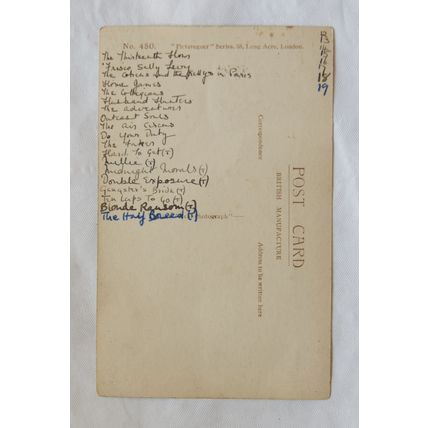 No. 450. "Picturegoer" Series, 88, Long Acre, London.
The Thirteenth Hour
'Frisco Sally Levy
The Cohens and the Kellys in Paris
Home James
The Collegians
Husband Hunters
The Adventurer
Outcast Souls
The Air Circus
Do Your Duty
The
Hard To Get (T)
Twelve (T)
Midnight Morals (T)
Double Exposure (T)
Gangster's Bride (T)
Ten Laps To Go (T)
Blonde Ransom (T)
The Half Breed (T) Photograph"
Correspondence
Address to be written here
POST CARD
BRITISH MANUFACTURE
16
17
18
19